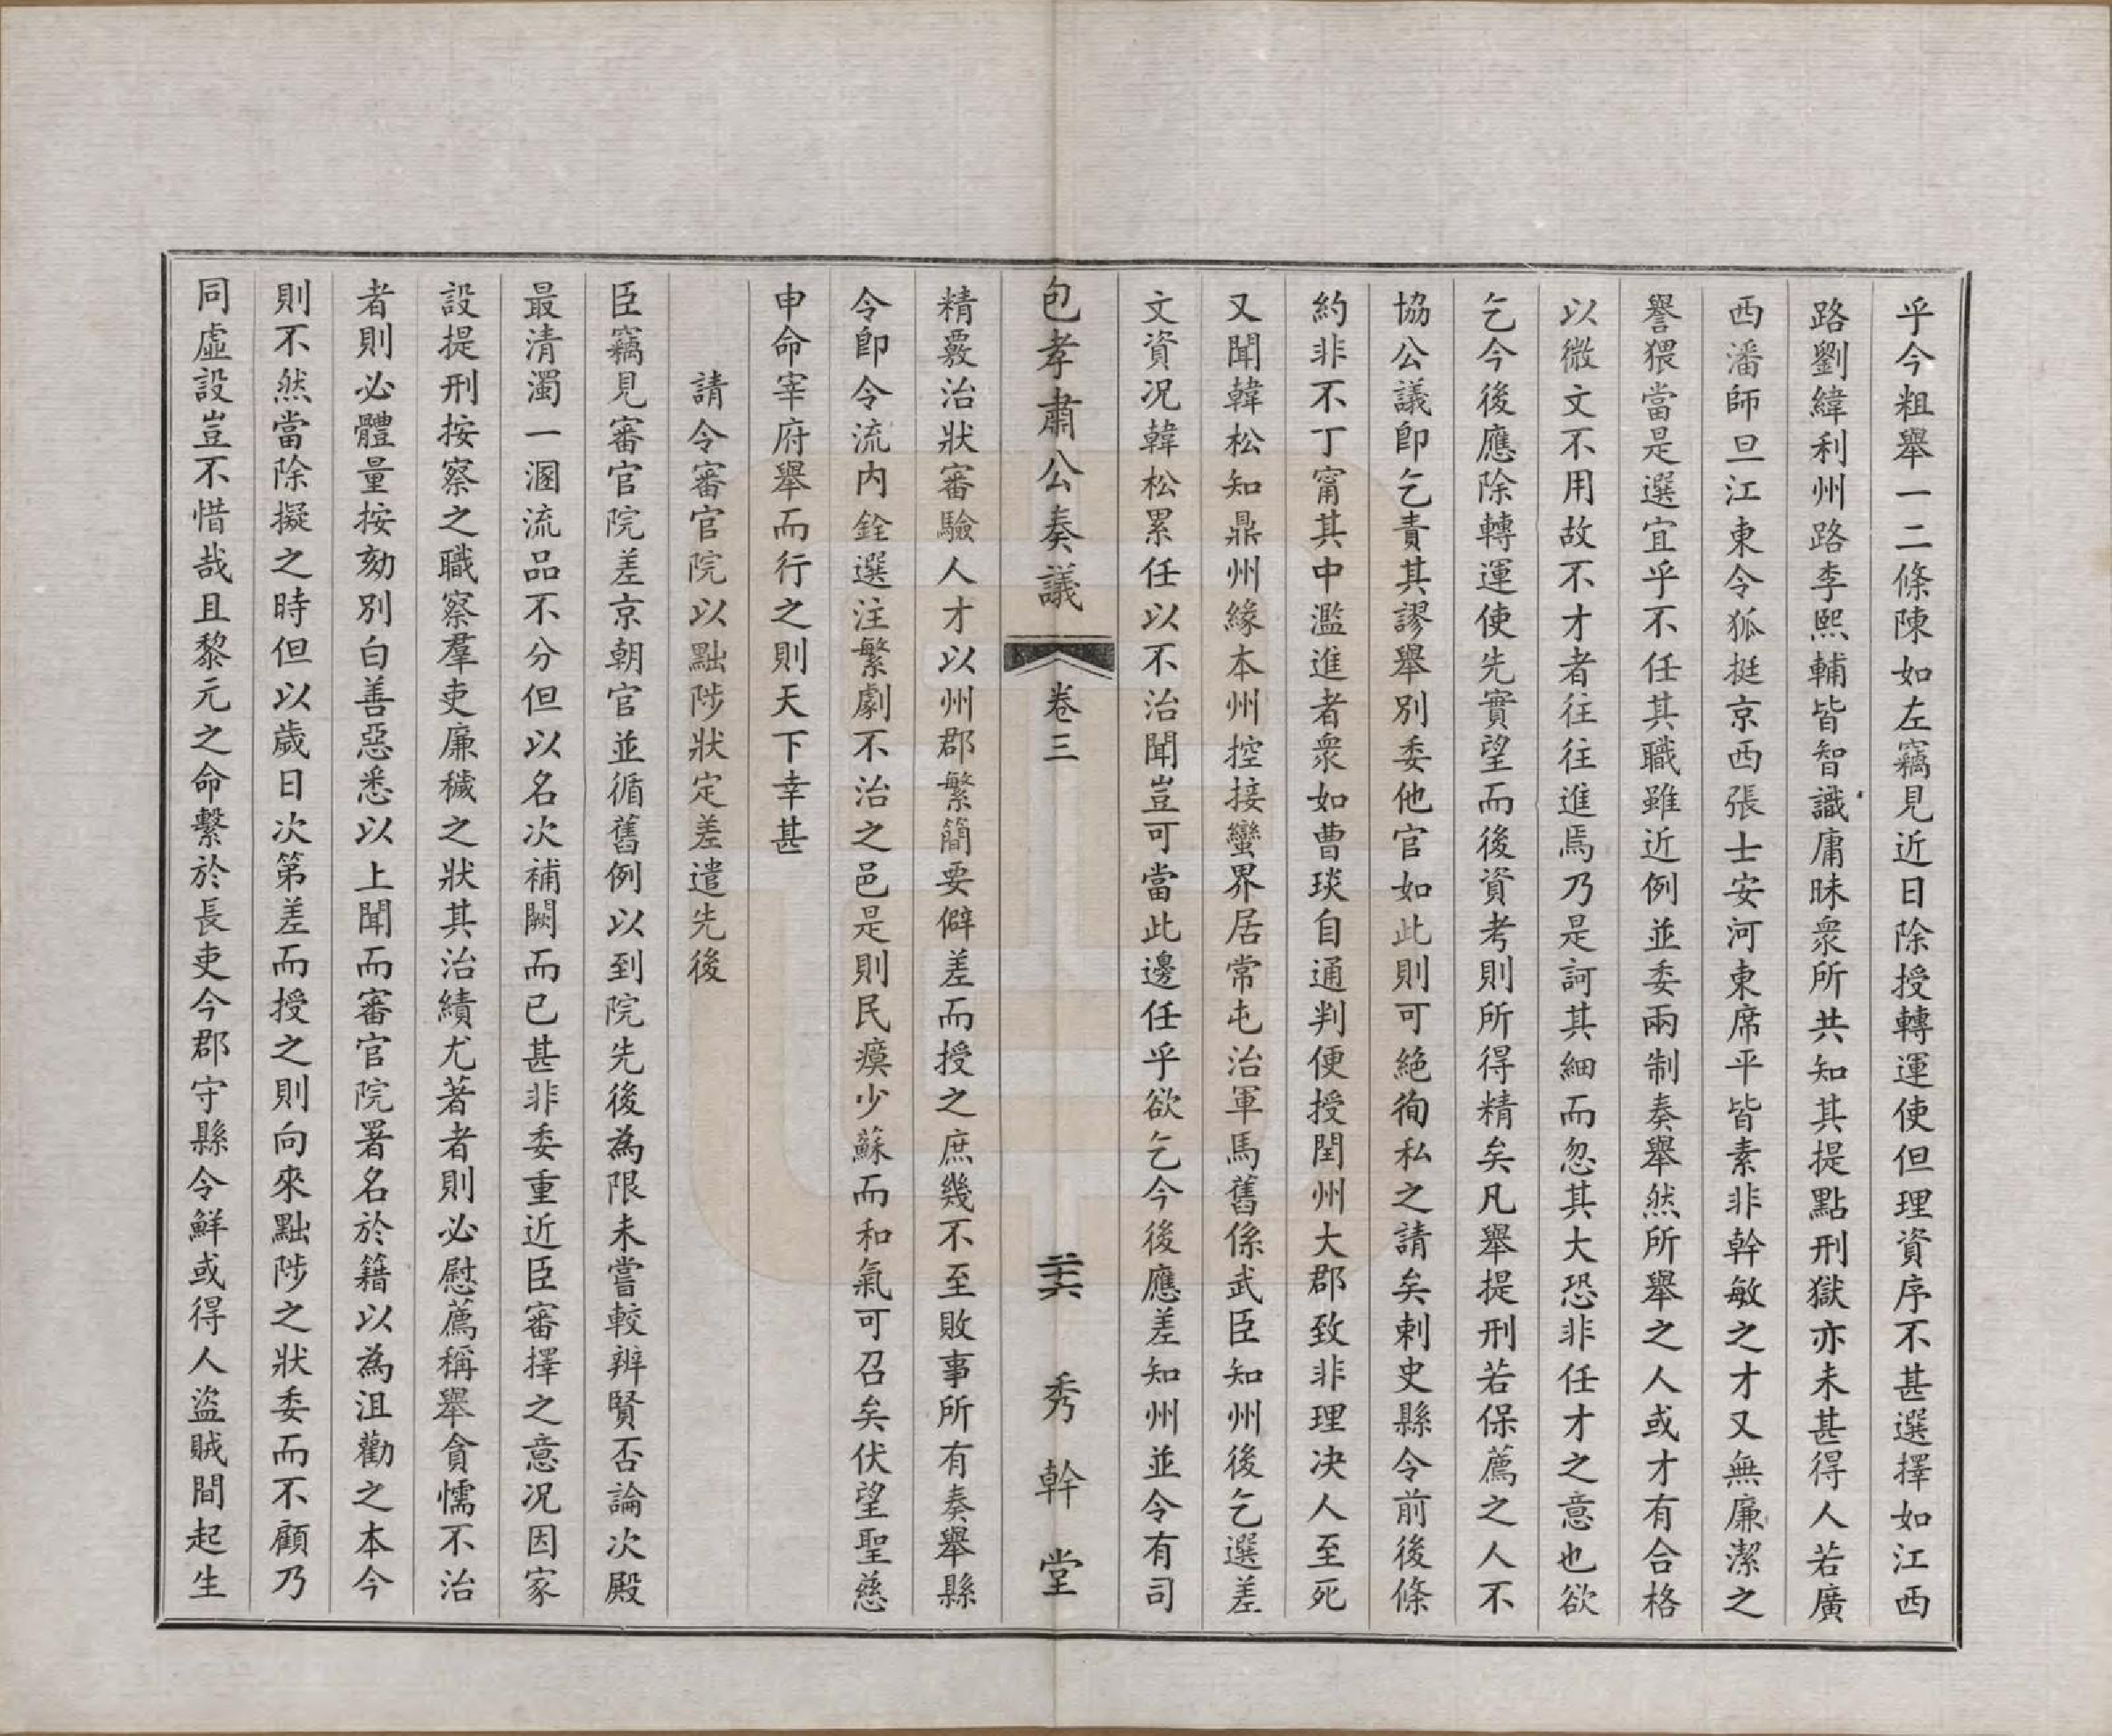 乎今粗舉一二條陳如左竊見近日除授轉運使但理資序不甚選擇如江西
路劉緯利州路李熙輔皆智識庸昧衆所共知其提點刑獄亦未甚得人若廣
西潘師旦江東令狐挺京西張士安河東席平皆素非幹敏之才又無廉潔之
譽猥當是選宜乎不任其職雖近例並委兩制奏舉然所舉之人或才有合格
以微文不用故不才者往往進焉乃是訶其細而忽其大恐非任才之意也欲
乞今後應除轉運使先實望而後資考則所得精矣凡舉提刑若保薦之人不
協公議卽乞責其謬舉別委他官如此則可絕徇私之請矣剌史縣令前後條
約非不丁甯其中濫進者衆如曹琰自通判便授閏州大郡致非理决人至死
又聞韓松知鼎州緣本州控接蠻界居常屯治軍馬舊係武臣知州後乞選差
文資况韓松累任以不治聞豈可當此邊任乎欲乞今後應差知州並令有司
包孝肅公奏議 卷三 三六 秀幹堂
精覈治狀審驗人才以州郡繁簡要僻差而授之庶幾不至敗事所有奏舉縣
令卽令流内銓選注繁劇不治之邑是則民瘼少蘇而和氣可召矣伏望聖慈
申命宰府舉而行之則天下幸甚
請令審官院以黜陟狀定差遣先後
臣竊見審官院差京朝官並循舊例以到院先後為限未嘗較辨賢否論次殿
最清濁一溷流品不分但以名次補闕而已甚非委重近臣審擇之意况因家
設提刑按察之職察羣吏廉穢之狀其治績尤著者則必慰薦稱舉貪懦不治
者則必體量按劾別白善惡悉以上聞而審官院署名於籍以為沮勸之本今
則不然當除擬之時但以歲日次第差而授之則向來黜陟之狀委而不顧乃
同虛設豈不惜哉且黎元之命繫於長吏今郡守縣令鮮或得人盜賊間起生